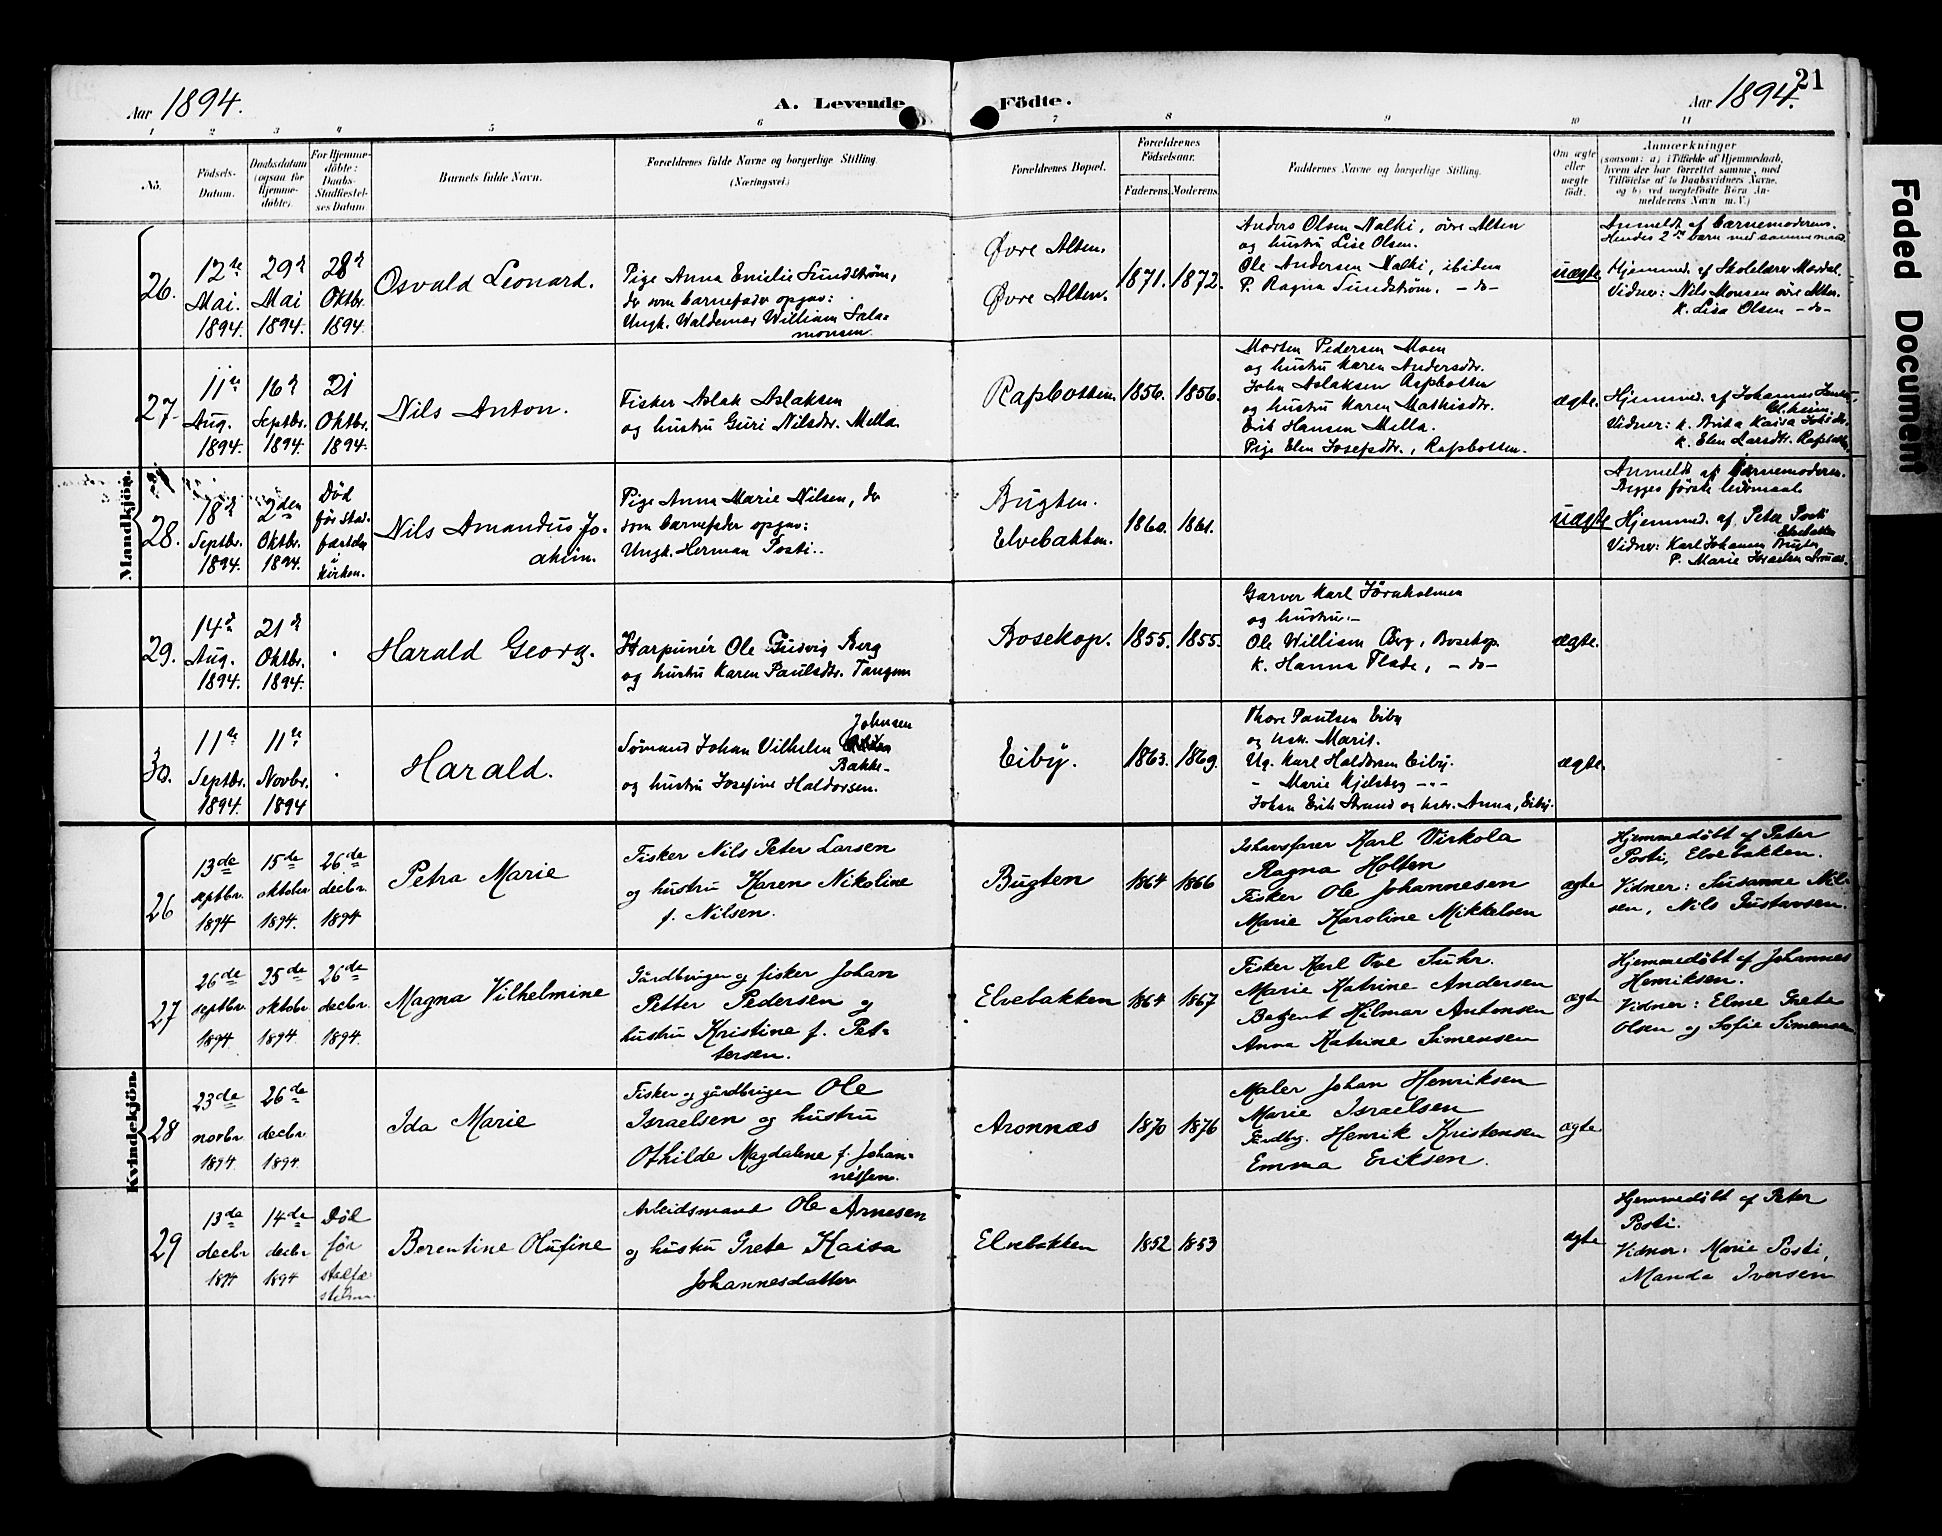 21
Aar 1894.
A. Levende Födte.
Aar 1894.
1 2 3 4 5 6 7 8 9 10 11
No.
Födsels-
Datum.
Daabsdatum
(ogsaa for
Hjemme-
döbte).
For Hjemme-
döbte:
Daabs-
Stadfæstel-
ses Datum
Barnets fulde Navn.
Forældrenes fulde Navne og borgerlige Stilling.
(Næringsvei.)
Forældrenes Bopæl.
Forældrenes
Födselsaar.
Faderens.
Moderens.
Faddernes Navne og borgerlige Stilling.
Om ægte
eller
uægte
födt.
Anmærkninger
(saasom: a) i Tilfælde af Hjemmedaab,
hvem der har forrettet samme, med
Tilföielse af to Daabsvidners Navne,
og b) ved uægtefödte Börn An-
melderens Navn m. V.)
Mandkjön.
26.
12te
Mai.
1894.
29de
Mai
1894.
28de
Oktbr.
1894.
Osvald Leonard.
Pige Anna Emilie Sundström,
der som barnefader opgav:
Ungk. Waldemar William Sala-
monsen.
Øvre Alten.
Øvre Alten.
1871. 1872.
Anders Olsen Nalki, øvre Alten
og hustru Lise Olsen.
Ole Andersen Nalki, ibidem
P. Ragna Sundström. -do-
uægte
Anmeldt af barnemoderen.
Hendes 2det barn med samme mand.
Hjemmed. af Skolelærer Mardal.
Vidner: Nils Monsen øvre Alten.
K. Lisa Olsen -do-
27.
11te
Aug.
1894.
16de
Septbr.
1894.
21
Oktbr.
1894.
Nils Anton.
Fisker Aslak Aslaksen
og hustru Guri Nilsdtr. Mella
Rafsbotten.
1856. 1856.
Morten Pedersen Moen
og hustru Karen Andersdtr.
John Aslaksen Rafsbotten
og hustru Karen Mathisdtr.
Erik Hansen Mella.
Pige Elen Josefsdtr., Rafsbotten.
ægte.
Hjemmed. af Johannes
Vidner: K. Brita Kaisa
K. Elen Larsdtr. Rafsbotten
28.
18de
Septbr.
1894.
2den
Oktbr.
1894.
Død
før stad-
fæstelse
i
kirken.
Nils Amandus Jo-
akim.
Pige Anna Marie Nilsen, der
som barnefader opgav:
Ungk. Herman Posti.
Bugten.
Elvebakken.
1860. 1861.
uægte
Anmeldt af Barnemoderen.
Begges første leiermaal.
Hjemmed. af Peter Posti
Elvebakken
Vidner: Karl Johansen Bugten
P. Marie Israelsen
29.
14de
Aug.
1894.
21de
Oktbr.
1894.
Harald Georg.
Harpunér Ole Gudvig Berg
og hustru Karen Paulsdtr. Tangen
Bosekop.
1855. 1855.
Garver Karl Jöraholmen
og hustru.-
Ole William Berg, Bosekop
K. Hanna Flade, -do-
ægte.
30.
11te
Septbr.
1894.
11te
Novbr.
1894
Harald.
Sømand Johan Vilhelm Johnsen
Bakke-
og hustru Josefine Haldorsen.
Eiby.
1863. 1869.
Thore Paulsen Eiby
og hstr. Marit.
Ug. Karl Haldorsen Eiby.
- Marie Kjelsberg -"-
Johan Erik Strand og hstr. Anna, Eiby.
ægte.
Kvindekjön.
26
13de
septbr.
1894
15de
oktober
1894.
26de
decbr.
1894
Petra Marie
Fisker Nils Peter Larsen
og hustru Karen Nikoline
f. Nilsen.
Bugten
1864 1866
Ishavsfarer Karl Virkola
Ragna Holten
Fisker Ole Johannesen
Marie Karoline Mikkelsen
ægte
Hjemmedøbt af Peter
Posti, Elvebakken.
Vidner: Susanne Nil-
sen, Nils Gustavsen.
27
26de
septbr.
1894
25de
oktobr
1894
26de
decbr.
1894.
Magna Vilhelmine
Gårdbruger og fisker Johan
Petter Pedersen og
hustru Kristine f. Pet-
tersen.
Elvebakken
1864 1867
Fisker Karl Ove Suhr.
Marie Katrine Andersen
Betjent Hilmar Antonsen
Anna Katrine Simensen
ægte
Hjemmedøbt af Johannes
Henriksen.
Vidner: Elme Grete
Olsen og Sofie Simensen
28
23de
novbr
1894.
26de
decbr.
1894.
Ida Marie
Fisker og gårdbruger Ole
Israelsen og hustru
Othilde Magdalene f. Johan-
nessen.
Aronnæs
1870 1876
Maler Johan Henriksen
Marie Israelsen
Gårdbg. Henrik Kristensen
Emma Eriksen.
ægte
29
13de
decbr
1894
14de
decbr
1894
Død
før
stadfæ
stelsen.
Berentine Olufine
Arbeidsmand Ole Arnesen
og hustru Grete Kaisa
Johannesdatter
Elvebakken
1852 1853
ægte
Hjemmedøbt af Peter
Posti.
Vidner: Marie Posti,
Manda Iversen
Faded Document